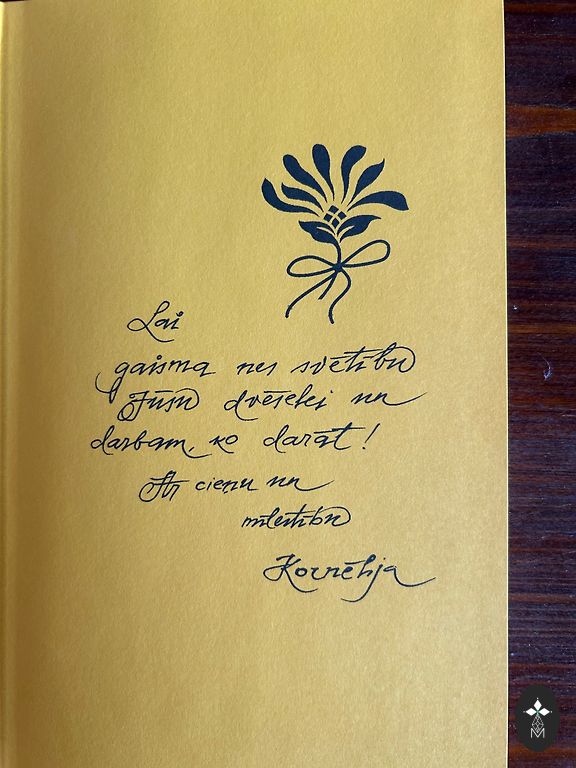 Lai
gaisma nes svētību
Jūsu dvēselei un
darbam, ko darāt!
Ar cieņu un
mīlestību
Kornēlija
M